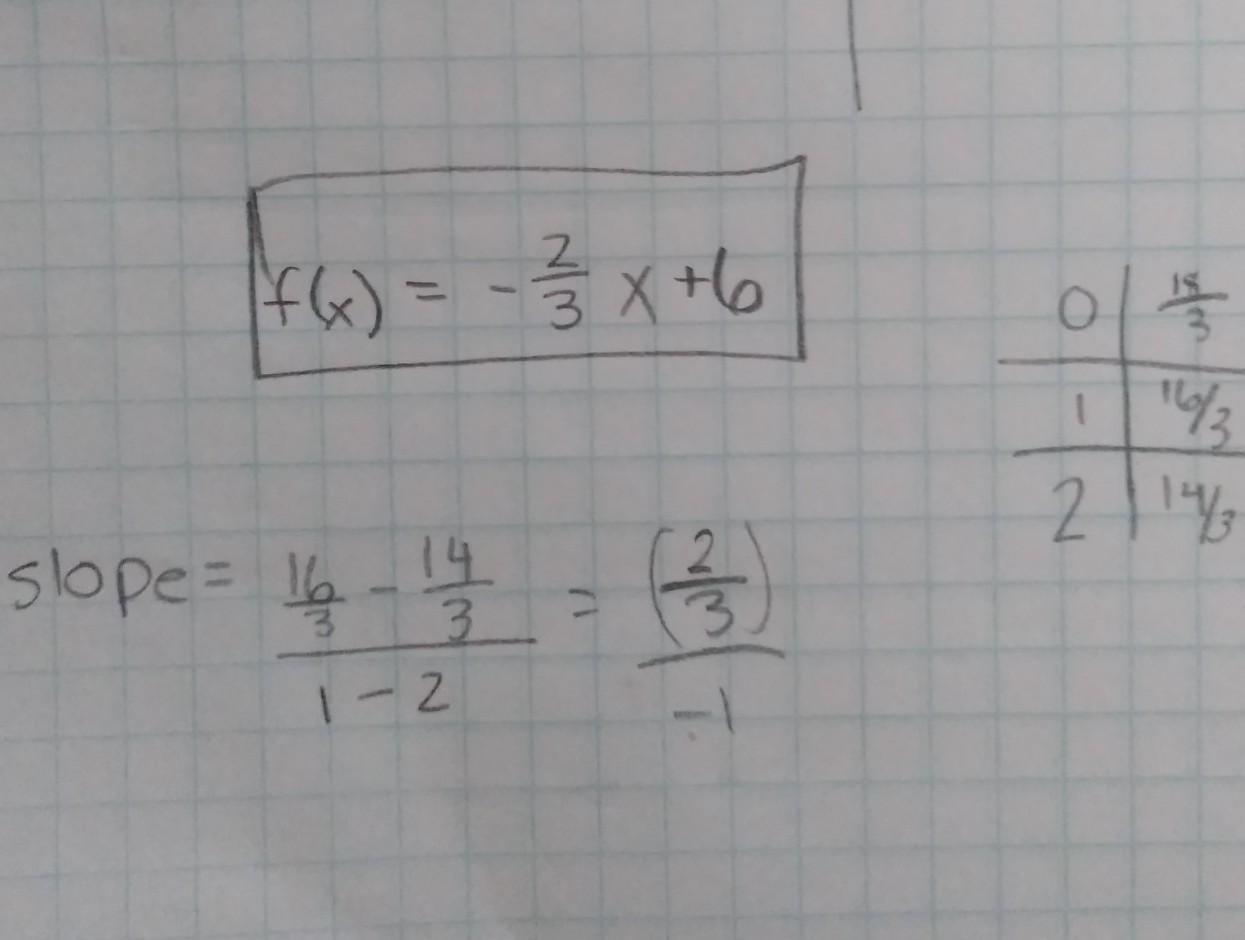 f(x) = -2/3 x + 6
0 | 18/3
1 | 16/3
2 | 14/3
slope = (16/3 - 14/3)/(1 - 2) = (2/3)/-1